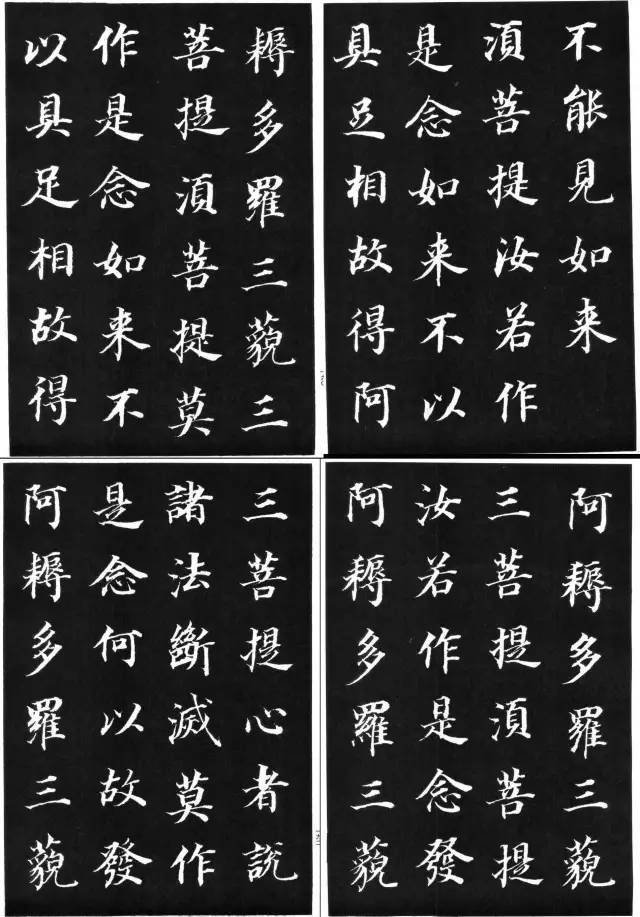 不能見如来
湏菩提汝若作
是念如来不以
具足相故得阿
耨多羅三藐三
菩提湏菩提莫
作是念如来不
以具足相故得
阿耨多羅三藐
三菩提湏菩提
汝若作是念發
阿耨多羅三藐
三菩提心者說
諸法斷滅莫作
是念何以故發
阿耨多羅三藐